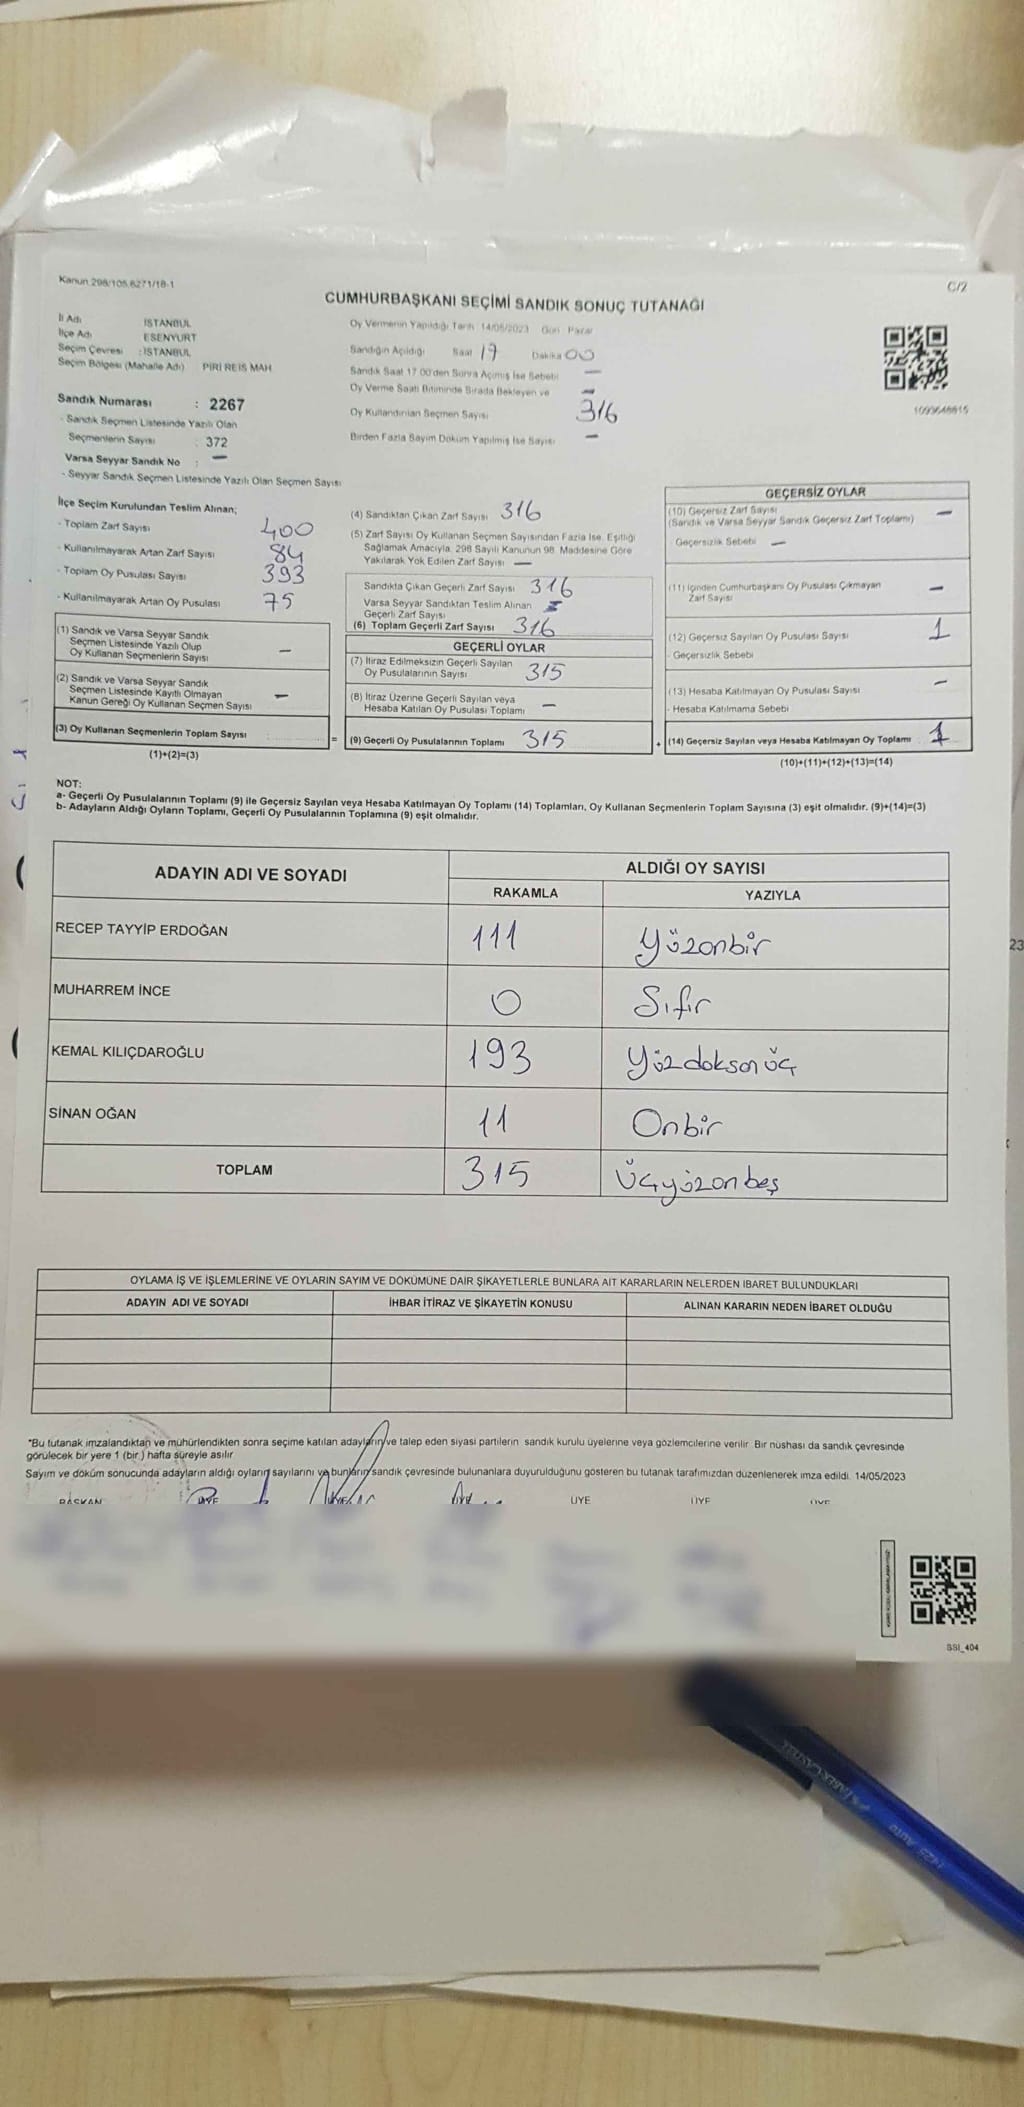 Kanun 298/105,6271/18-1
C/2
CUMHURBAŞKANI SEÇİMİ SANDIK SONUÇ TUTANAĞI
İl Adı İSTANBUL
İlçe Adı ESENYURT
Seçim Çevresi : İSTANBUL
Seçim Bölgesi (Mahalle Adı) PİRİ REİS MAH
Sandık Numarası : 2267
- Sandık Seçmen Listesinde Yazılı Olan
Seçmenlerin Sayısı : 372
Varsa Seyyar Sandık No : —
- Seyyar Sandık Seçmen Listesinde Yazılı Olan Seçmen Sayısı
Oy Vermenin Yapıldığı Tarih 14/05/2023 Gün Pazar
Sandığın Açıldığı Saat 17 Dakika 00
Sandık Saat 17.00'den Sonra Açılmış İse Sebebi —
Oy Verme Saati Bitiminde Sırada Bekleyen ve —
Oy Kullandırılan Seçmen Sayısı 316
Birden Fazla Sayım Döküm Yapılmış İse Sayısı —
1093648815
İlçe Seçim Kurulundan Teslim Alınan;
- Toplam Zarf Sayısı 400
- Kullanılmayarak Artan Zarf Sayısı 84
- Toplam Oy Pusulası Sayısı 393
- Kullanılmayarak Artan Oy Pusulası 75
(1) Sandık ve Varsa Seyyar Sandık
Seçmen Listesinde Yazılı Olup
Oy Kullanan Seçmenlerin Sayısı —
(2) Sandık ve Varsa Seyyar Sandık
Seçmen Listesinde Kayıtlı Olmayan
Kanun Gereği Oy Kullanan Seçmen Sayısı —
(3) Oy Kullanan Seçmenlerin Toplam Sayısı
(1)+(2)=(3)
(4) Sandıktan Çıkan Zarf Sayısı 316
(5) Zarf Sayısı Oy Kullanan Seçmen Sayısından Fazla İse, Eşitliği
Sağlamak Amacıyla, 298 Sayılı Kanunun 98. Maddesine Göre
Yakılarak Yok Edilen Zarf Sayısı —
Sandıkta Çıkan Geçerli Zarf Sayısı 316
Varsa Seyyar Sandıktan Teslim Alınan
Geçerli Zarf Sayısı
(6) Toplam Geçerli Zarf Sayısı 316
GEÇERLİ OYLAR
(7) İtiraz Edilmeksizin Geçerli Sayılan
Oy Pusulalarının Sayısı 315
(8) İtiraz Üzerine Geçerli Sayılan veya
Hesaba Katılan Oy Pusulası Toplamı —
= (9) Geçerli Oy Pusulalarının Toplamı 315
GEÇERSİZ OYLAR
(10) Geçersiz Zarf Sayısı
(Sandık ve Varsa Seyyar Sandık Geçersiz Zarf Toplamı) —
Geçersizlik Sebebi —
(11) İçinden Cumhurbaşkanı Oy Pusulası Çıkmayan
Zarf Sayısı —
(12) Geçersiz Sayılan Oy Pusulası Sayısı 1
- Geçersizlik Sebebi
(13) Hesaba Katılmayan Oy Pusulası Sayısı —
- Hesaba Katılmama Sebebi
+ (14) Geçersiz Sayılan veya Hesaba Katılmayan Oy Toplamı 1
(10)+(11)+(12)+(13)=(14)
NOT:
a- Geçerli Oy Pusulalarının Toplamı (9) ile Geçersiz Sayılan veya Hesaba Katılmayan Oy Toplamı (14) Toplamları, Oy Kullanan Seçmenlerin Toplam Sayısına (3) eşit olmalıdır. (9)+(14)=(3)
b- Adayların Aldığı Oyların Toplamı, Geçerli Oy Pusulalarının Toplamına (9) eşit olmalıdır.
ADAYIN ADI VE SOYADI ALDIĞI OY SAYISI
RAKAMLA YAZIYLA
RECEP TAYYİP ERDOĞAN 111 Yüzonbir
MUHARREM İNCE 0 Sıfır
KEMAL KILIÇDAROĞLU 193 Yüzdoksanüç
SİNAN OĞAN 11 Onbir
TOPLAM 315 Üçyüzonbeş
OYLAMA İŞ VE İŞLEMLERİNE VE OYLARIN SAYIM VE DÖKÜMÜNE DAİR ŞİKAYETLERLE BUNLARA AİT KARARLARIN NELERDEN İBARET BULUNDUKLARI
ADAYIN ADI VE SOYADI İHBAR İTİRAZ VE ŞİKAYETİN KONUSU ALINAN KARARIN NEDEN İBARET OLDUĞU
*Bu tutanak imzalandıktan ve mühürlendikten sonra seçime katılan adayların ve talep eden siyasi partilerin sandık kurulu üyelerine veya gözlemcilerine verilir. Bir nüshası da sandık çevresinde
görülecek bir yere 1 (bir) hafta süreyle asılır
Sayım ve döküm sonucunda adayların aldığı oyların sayılarını ve bunların sandık çevresinde bulunanlara duyurulduğunu gösteren bu tutanak tarafımızdan düzenlenerek imza edildi. 14/05/2023
BAŞKAN ÜYE ÜYE ÜYE ÜYE ÜYE ÜYE
SSI_404
FABER-CASTELL
1425 AUTO
23